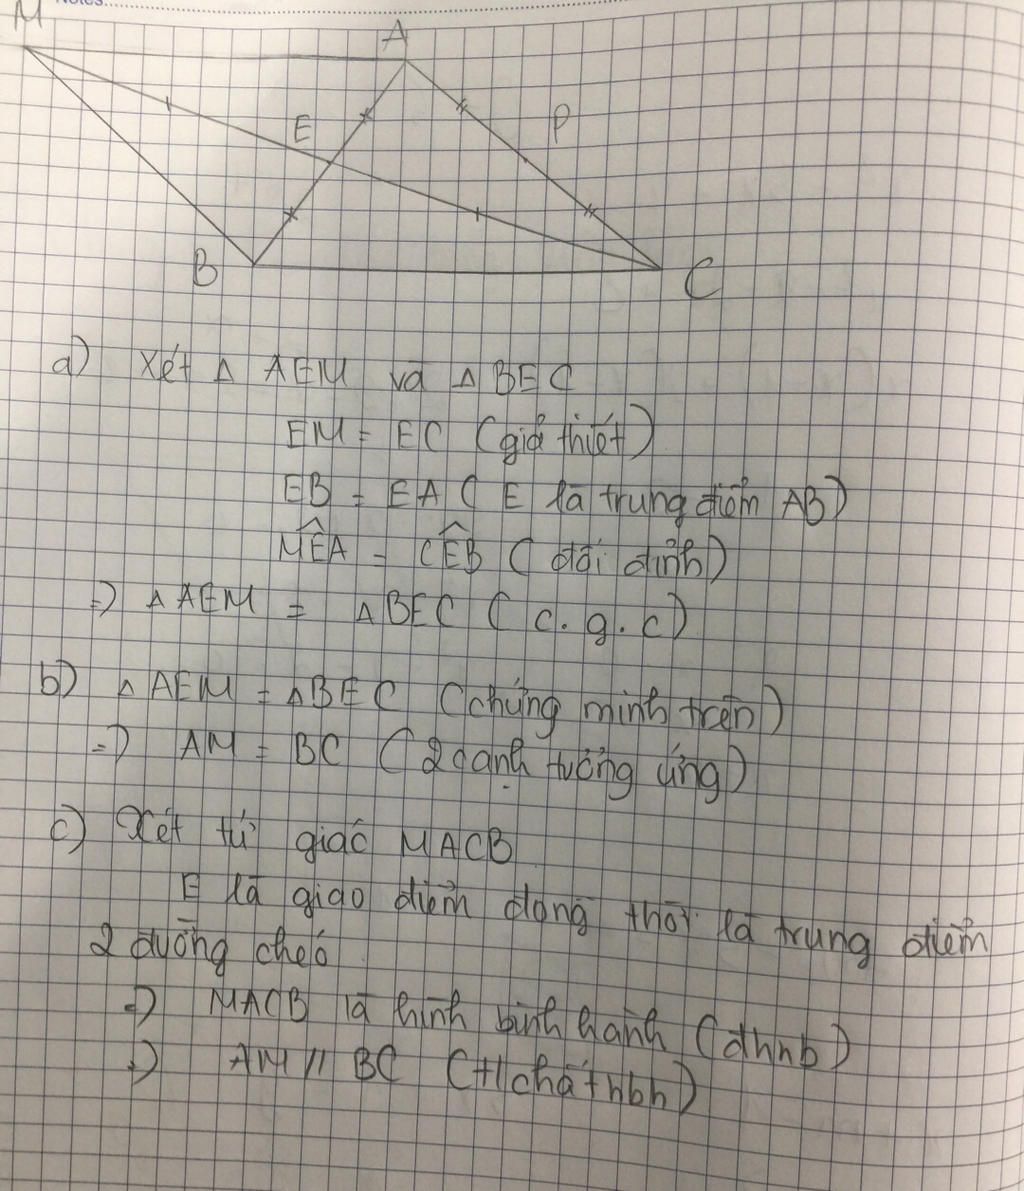 Notes:
M
A
E
P
B
C
a) Xét Δ AEM và Δ BEC
EM = EC (giả thiết)
EB = EA ( E là trung điểm AB)
MÊA = CÊB ( đối đỉnh)
=> Δ AEM = Δ BEC ( c. g. c)
b) Δ AEM = Δ BEC (chứng minh trên)
=> AM = BC ( 2 cạnh tương ứng)
c) Xét tứ giác MACB
E là giao điểm đồng thời là trung điểm
2 đường chéo
=> MACB là hình bình hành (dhnb)
=> AM // BC (t/chất hbh)